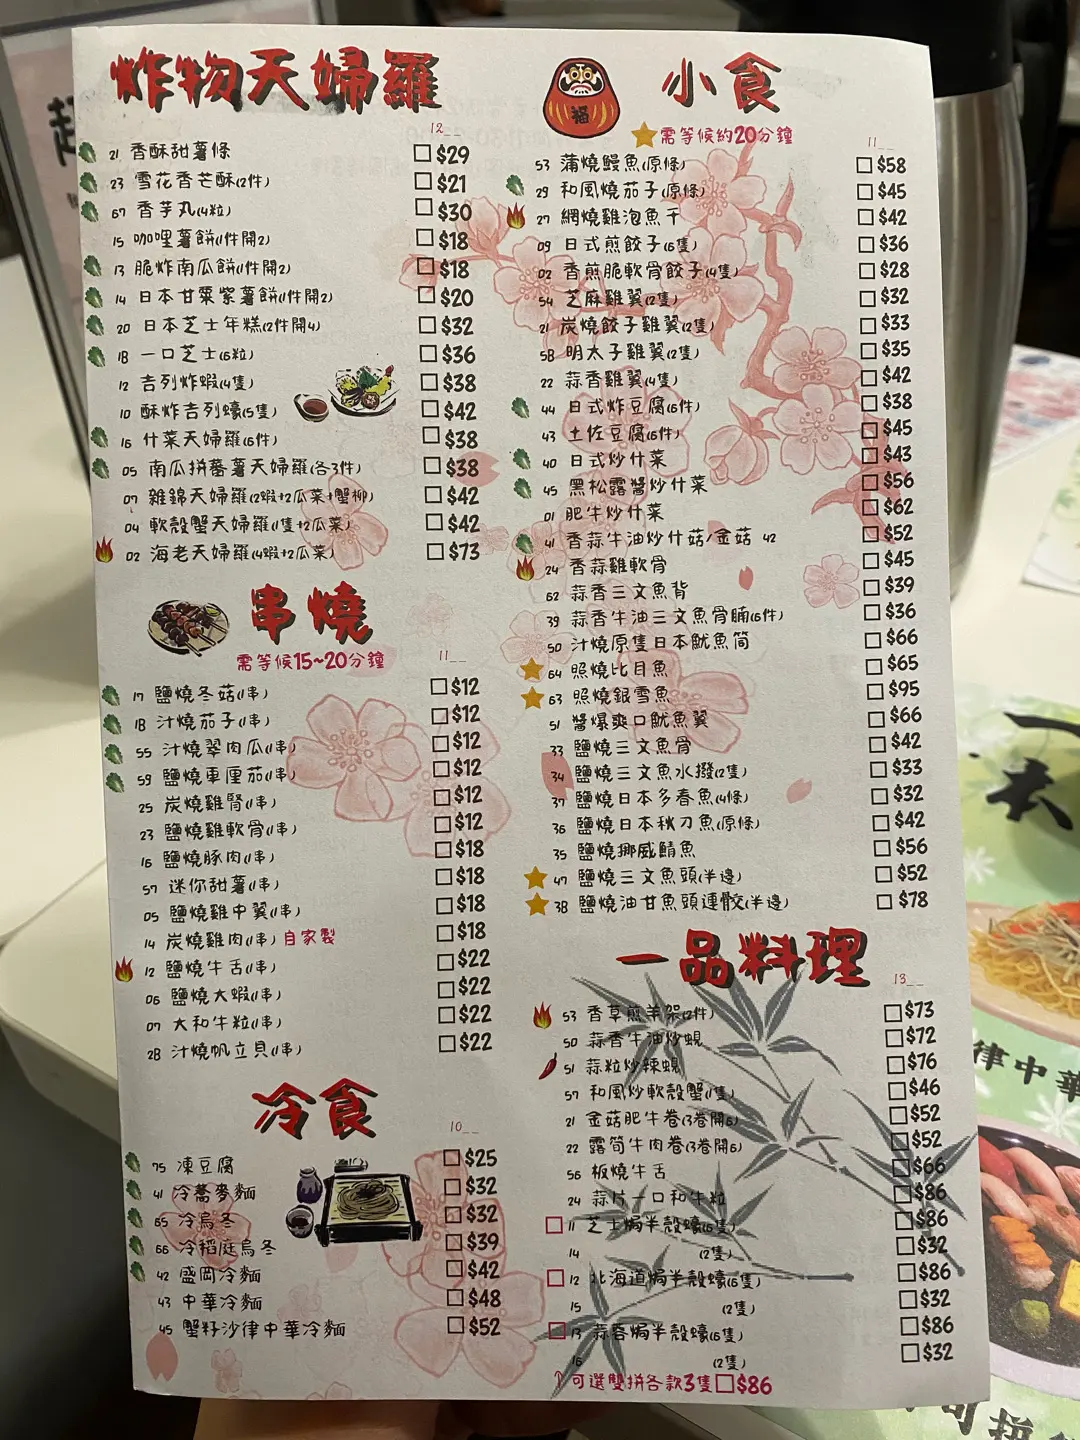 炸物天婦羅
12__
21 香酥甜薯條 □$29
23 雪花香芒酥(2件) □$21
67 香芋丸(4粒) □$30
15 咖哩薯餅(1件開2) □$18
13 脆炸南瓜餅(1件開2) □$18
14 日本甘粟紫薯餅(1件開2) □$20
20 日本芝士年糕(2件開4) □$32
18 一口芝士(6粒) □$36
12 吉列炸蝦(4隻) □$38
10 酥炸吉列蠔(5隻) □$42
16 什菜天婦羅(6件) □$38
05 南瓜拼蕃薯天婦羅(各3件) □$38
07 雜錦天婦羅(2蝦+2瓜菜+蟹柳) □$42
04 軟殼蟹天婦羅(1隻+2瓜菜) □$42
02 海老天婦羅(4蝦+2瓜菜) □$73
串燒
需等候15~20分鐘
11__
17 鹽燒冬菇(1串) □$12
18 汁燒茄子(1串) □$12
55 汁燒翠肉瓜(1串) □$12
59 鹽燒車厘茄(1串) □$12
25 炭燒雞腎(1串) □$12
23 鹽燒雞軟骨(1串) □$12
16 鹽燒豚肉(1串) □$18
57 迷你甜薯(1串) □$18
05 鹽燒雞中翼(1串) □$18
14 炭燒雞肉(1串) 自家製 □$18
12 鹽燒牛舌(1串) □$22
06 鹽燒大蝦(1串) □$22
07 大和牛粒(1串) □$22
28 汁燒帆立貝(1串) □$22
冷食
10__
75 凍豆腐 □$25
41 冷蕎麥麵 □$32
65 冷烏冬 □$32
66 冷稻庭烏冬 □$39
42 盛岡冷麵 □$42
43 中華冷麵 □$48
45 蟹籽沙律中華冷麵 □$52
福
小食
需等候約20分鐘
11__
53 蒲燒鰻魚(原條) □$58
29 和風燒茄子(原條) □$45
27 網燒雞泡魚干 □$42
09 日式煎餃子(6隻) □$36
02 香煎脆軟骨餃子(4隻) □$28
54 芝麻雞翼(2隻) □$32
21 炭燒餃子雞翼(2隻) □$33
58 明太子雞翼(2隻) □$35
22 蒜香雞翼(4隻) □$42
44 日式炸豆腐(6件) □$38
43 土佐豆腐(6件) □$45
40 日式炒什菜 □$43
45 黑松露醬炒什菜 □$56
01 肥牛炒什菜 □$62
41 香蒜牛油炒什菇/金菇 42 □$52
24 香蒜雞軟骨 □$45
62 蒜香三文魚背 □$39
39 蒜香牛油三文魚骨腩(6件) □$36
50 汁燒原隻日本魷魚筒 □$66
64 照燒比目魚 □$65
63 照燒銀雪魚 □$95
51 醬爆爽口魷魚翼 □$66
33 鹽燒三文魚骨 □$42
34 鹽燒三文魚水撥(2隻) □$33
37 鹽燒日本多春魚(4條) □$32
36 鹽燒日本秋刀魚(原條) □$42
35 鹽燒挪威鯖魚 □$56
47 鹽燒三文魚頭(半邊) □$52
38 鹽燒油甘魚頭連骹(半邊) □$78
一品料理
13__
53 香草煎羊架(2件) □$73
50 蒜香牛油炒蜆 □$72
51 蒜粒炒辣蜆 □$76
57 和風炒軟殼蟹(1隻) □$46
21 金菇肥牛卷(3卷開6) □$52
22 露筍牛肉卷(3卷開6) □$52
56 板燒牛舌 □$66
24 蒜片一口和牛粒 □$86
□ 11 芝士焗半殼蠔(6隻) □$86
14 (2隻) □$32
□ 12 北海道焗半殼蠔(6隻) □$86
15 (2隻) □$32
□ 13 蒜蓉焗半殼蠔(6隻) □$86
16 (2隻) □$32
↑可選雙拼各款3隻□$86
律中華